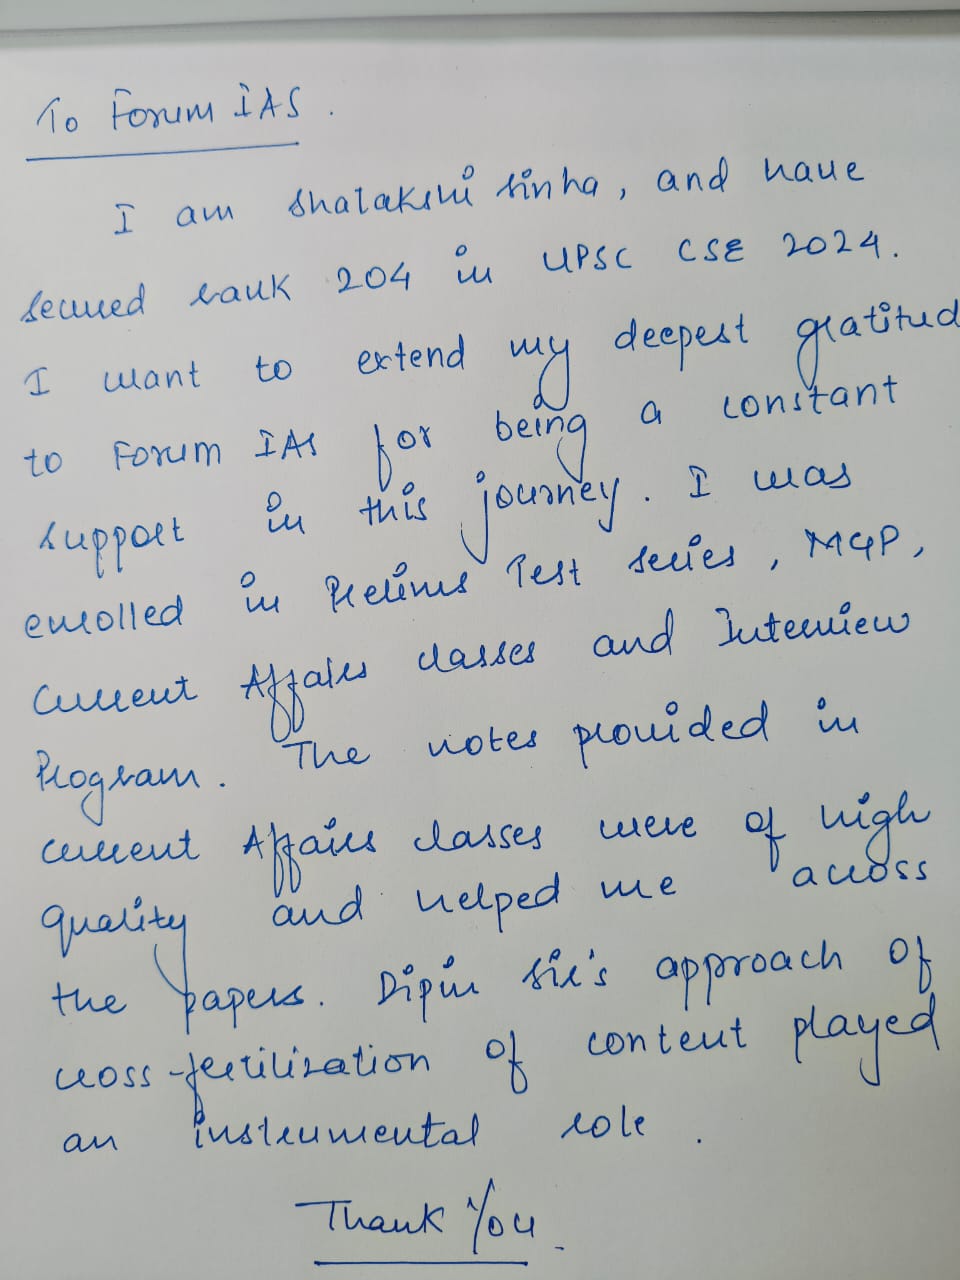 To Forum IAS.
I am Shalakshi Sinha, and have
secured rank 204 in UPSC CSE 2024.
I want to extend my deepest gratitud
to Forum IAS for being a constant
support in this journey. I was
enrolled in Prelims Test series, MGP,
Current Affairs classes and Interview
Program. The notes provided in
current Affairs classes were of high
quality and helped me across
the papers. Dipin sir's approach of
cross-fertilization of content played
an instrumental role.
Thank You.